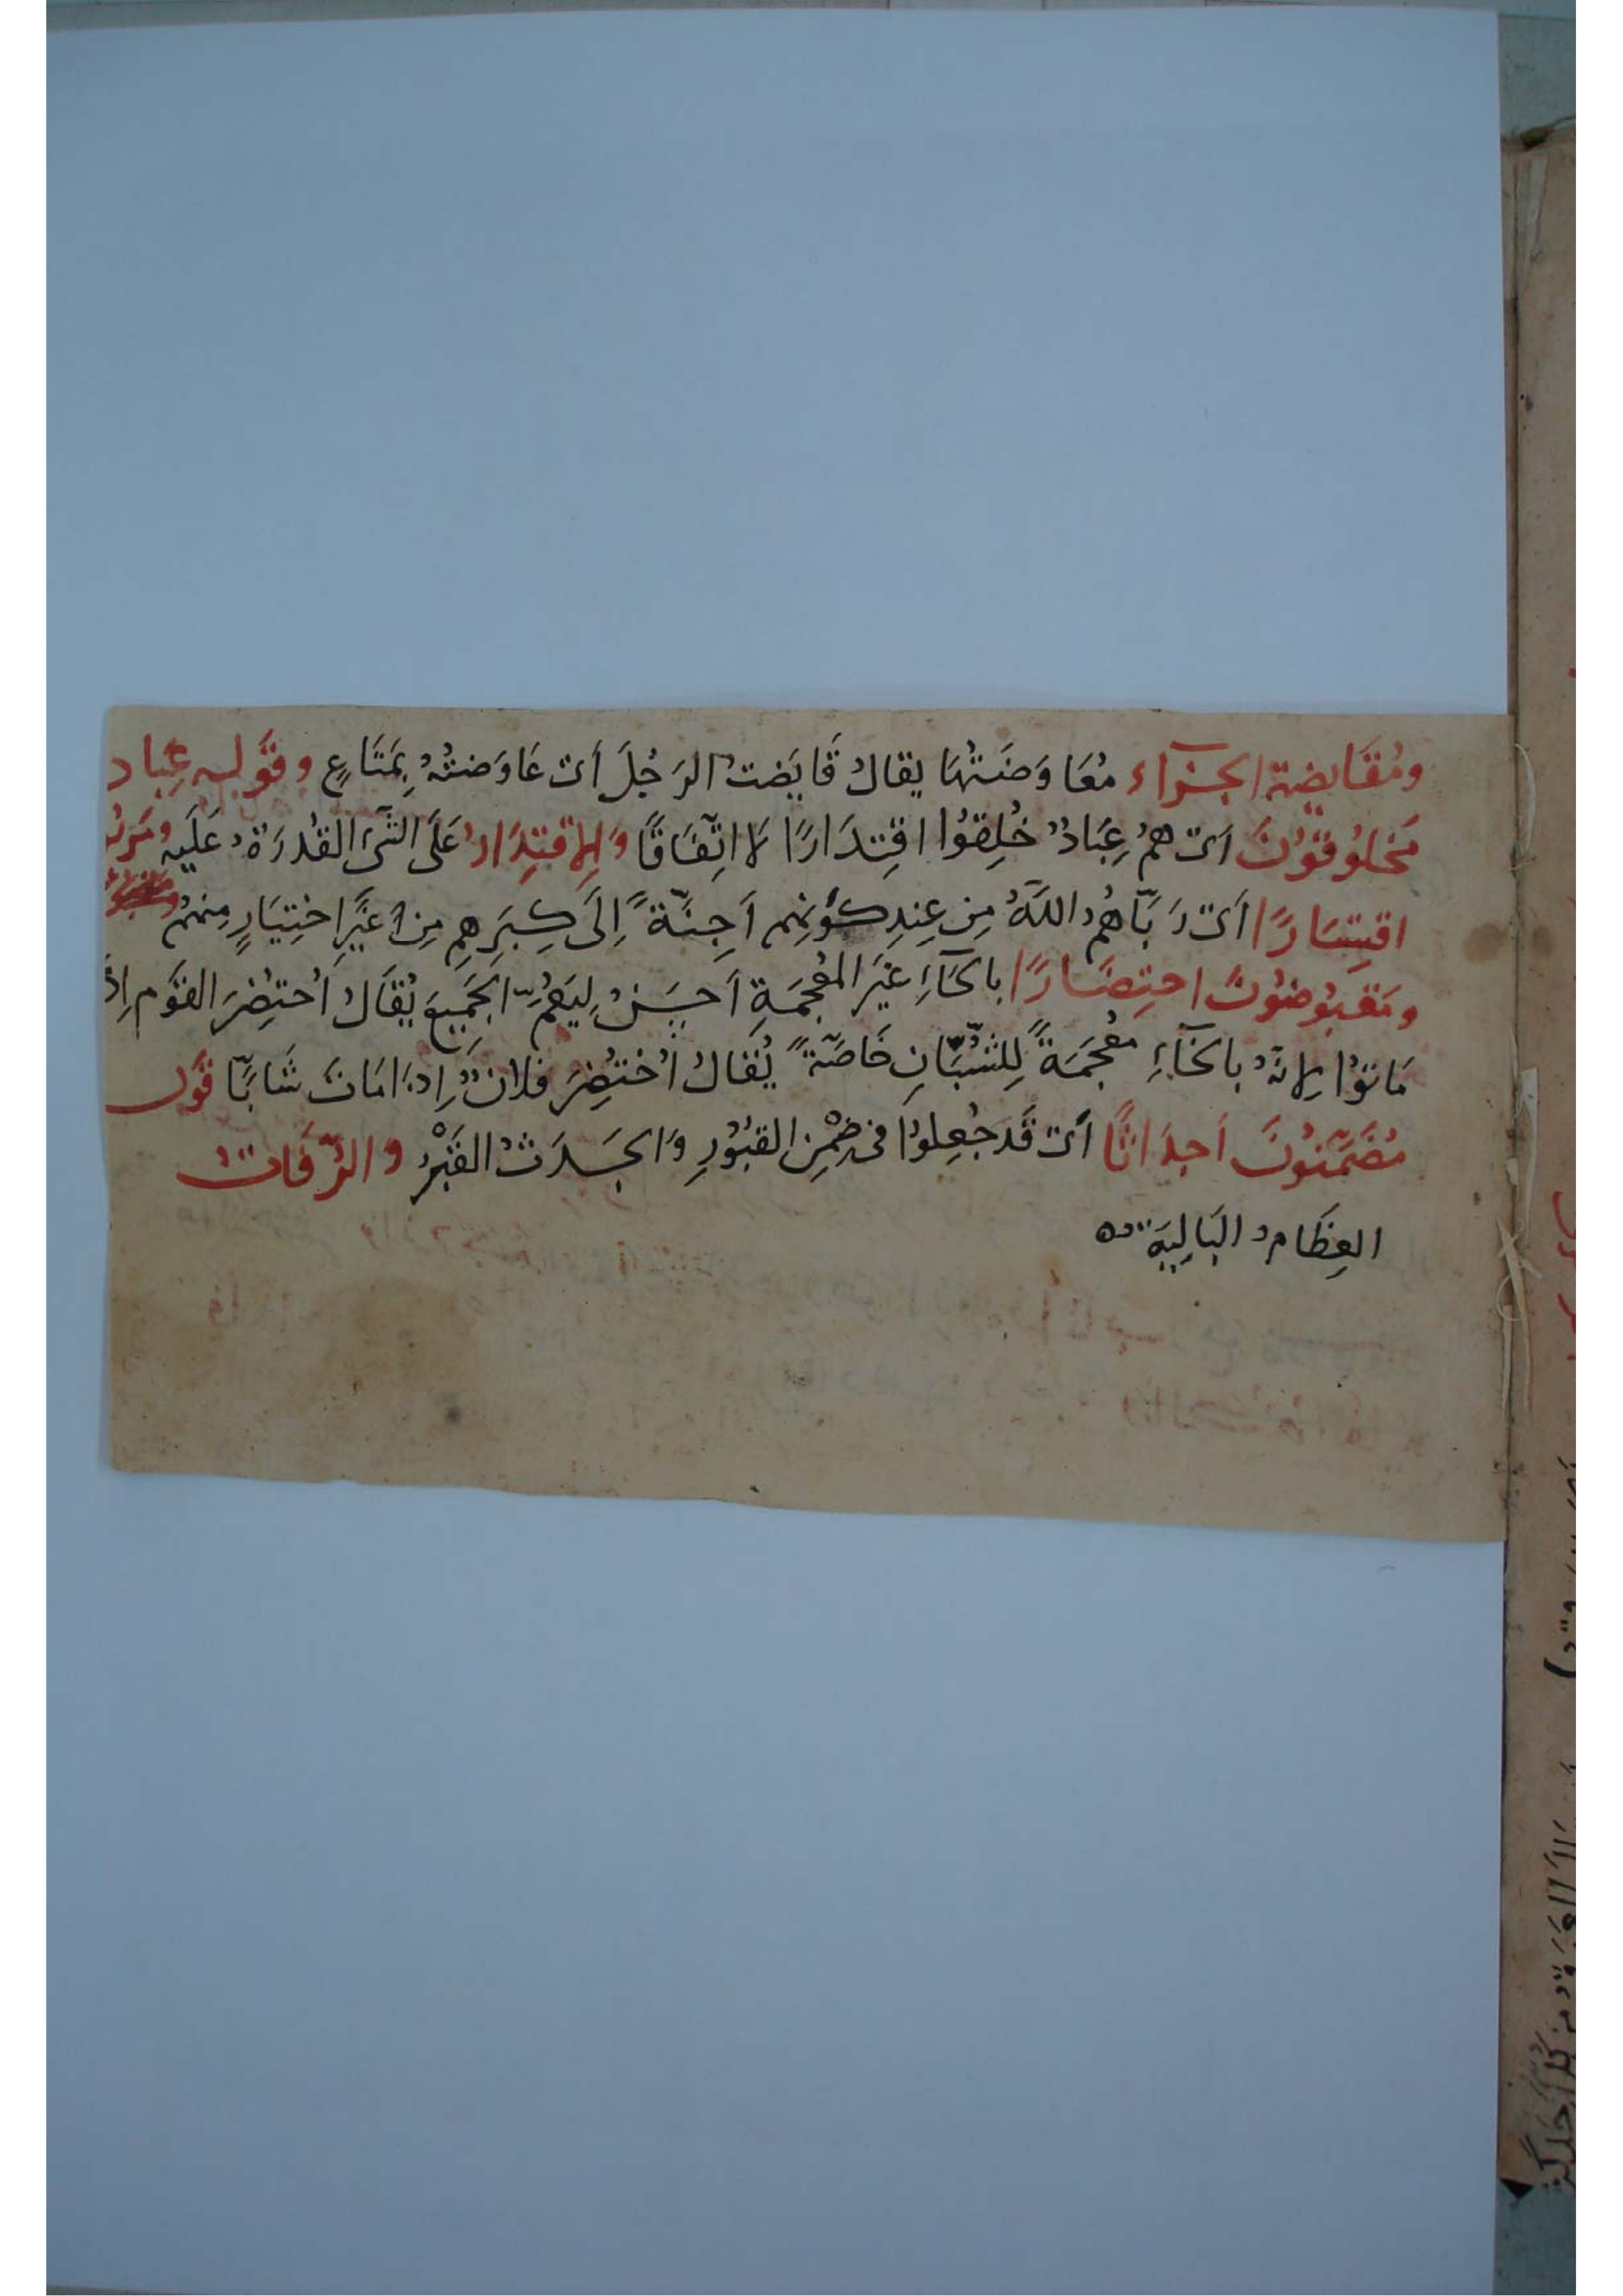 ومُقَايضة الجزآء مُعَاوَضَتُهَا يقالُ قَايَضتُ الرَجُلَ أىْ عَاوَضتُهُ بِمَتَاعٍ وقَوله عِباد
مَخلُوقوُنَ اىْ همُ عِبَادٌ خُلِقوُا اقتِدَارًا لا اتِّفَاقًا وَالاِقتِدَارُ عَلَى الشَىءِ القُدرَةُ عَلَيهِ ومَربُو
اقتِسَارًا اىْ رَبَّاهُمُ اللّهُ مِن عِندِ كَوْنِهِم اَجِنّةً اِلَى كِبَرِهِم مِن غَيْرِ اختِيَارٍ مِنهُم
ومَقبوُضوُنَ احتِضَارًا بالحَآءِ غَيرَ المُعجَمَةِ اَحسَنُ لِيَعُمَّ الجَمِيعَ يُقَالُ اُحتُضِرَ القَوم اِذَا
مَاتوُا لاِنّهُ بالخَآءِ مُعجَمَةً لِلشُبَّانِ خَاصّةً يُقَالُ اُختُضِرَ فلانٌ اِذا مَاتَ شَابًّا قَول
مُضَمَّنوُنَ اَجدَاثًا أىْ قَد جُعِلوُا فى ضِمْنِ القبُوُرِ وَالجَدَثُ القَبْرُ والرُّفَاتُ
العِظَامُ البَالِيَةُ ه